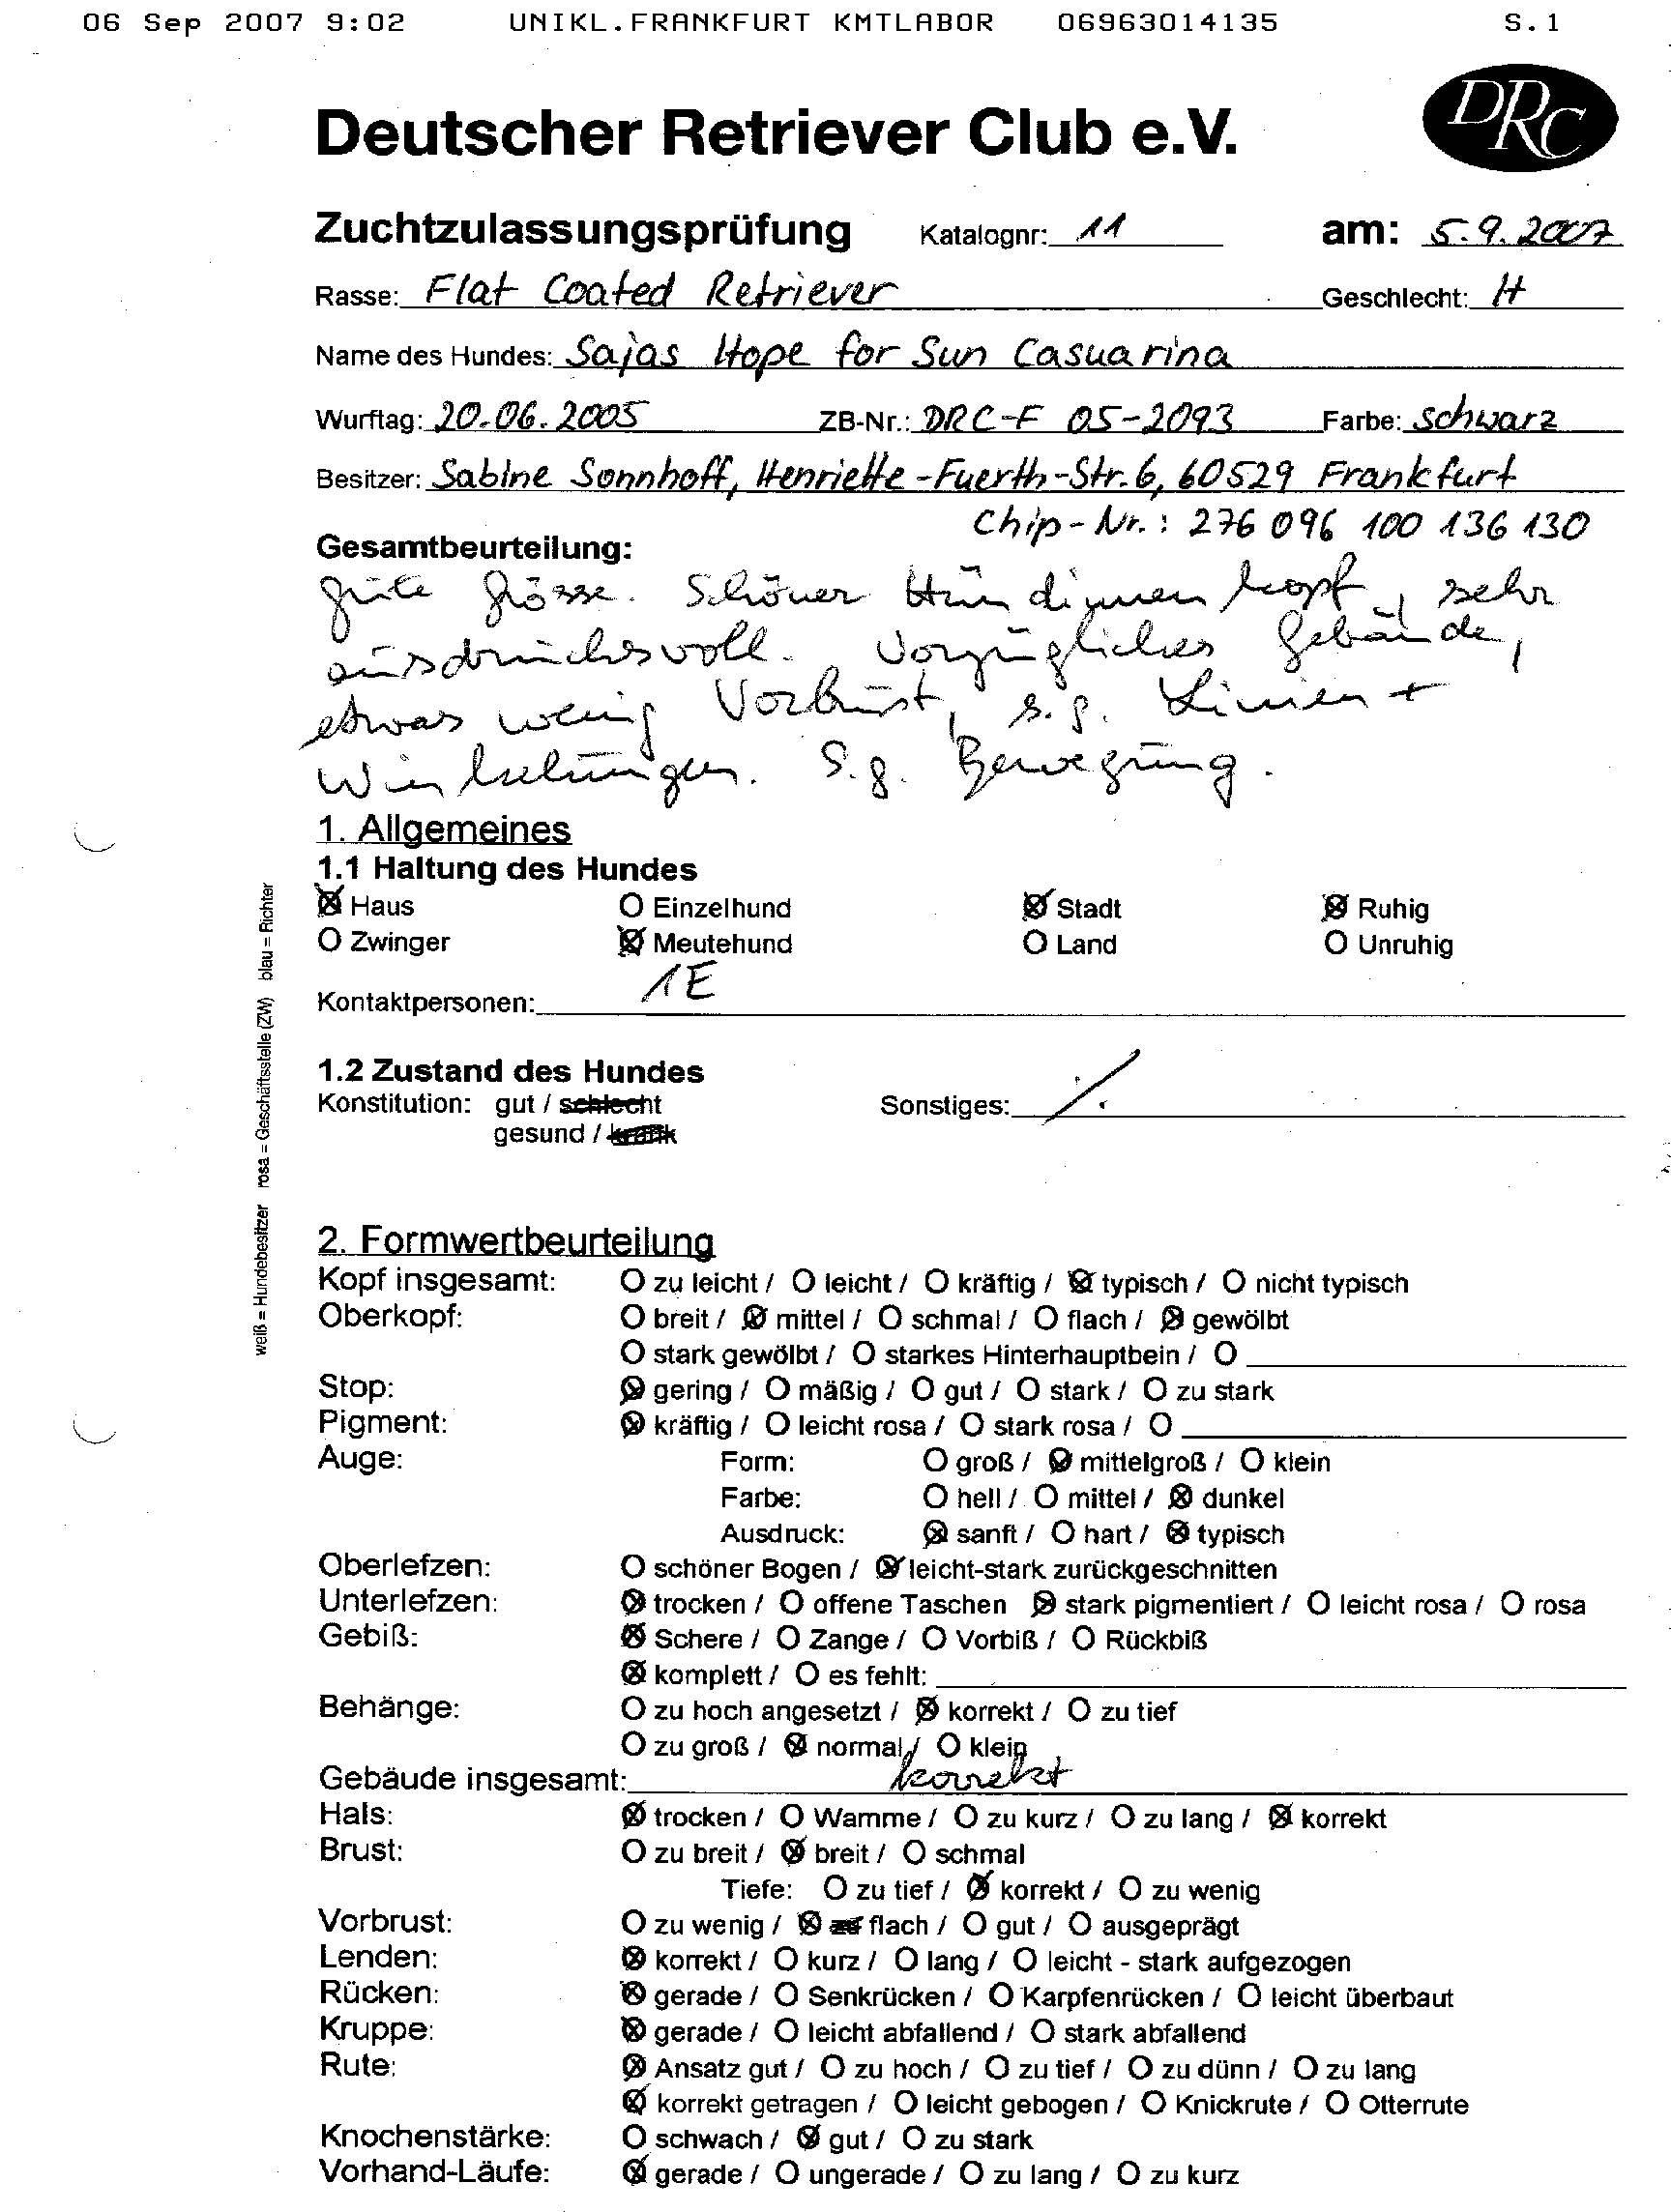 06 Sep 2007 9:02 UNIKL.FRANKFURT KMTLABOR 06963014135 S.1
DRC
Deutscher Retriever Club e.V.
Zuchtzulassungsprüfung Katalognr: 11 am: 5.9.2007
Rasse: Flat Coated Retriever Geschlecht: H
Name des Hundes: Sajas Hope for Sun Casuarina
Wurftag: 20.06.2005 ZB-Nr.: DRC-F 05-2093 Farbe: schwarz
Besitzer: Sabine Sonnhoff, Henriette-Fuerth-Str. 6, 60529 Frankfurt
Chip-Nr.: 276 096 100 136 130
Gesamtbeurteilung:
gute Grösse. Schöner Hündinnenkopf, sehr
ausdrucksvoll. Vorzügliches Gebäude,
etwas wenig Vorbrust, s.g. Linien +
Winkelungen. S.g. Bewegung.
1. Allgemeines
1.1 Haltung des Hundes
Haus O Einzelhund Stadt Ruhig
O Zwinger Meutehund O Land O Unruhig
Kontaktpersonen: 1E
1.2 Zustand des Hundes
Konstitution: gut / schlecht Sonstiges: ./.
gesund / krank
weiß = Hundebesitzer rosa = Geschäftsstelle (ZW) blau = Richter
2. Formwertbeurteilung
Kopf insgesamt: O zu leicht / O leicht / O kräftig / ⊗ typisch / O nicht typisch
Oberkopf: O breit / ⊗ mittel / O schmal / O flach / ⊗ gewölbt
O stark gewölbt / O starkes Hinterhauptbein / O
Stop: ⊗ gering / O mäßig / O gut / O stark / O zu stark
Pigment: ⊗ kräftig / O leicht rosa / O stark rosa / O
Auge: Form: O groß / ⊗ mittelgroß / O klein
Farbe: O hell / O mittel / ⊗ dunkel
Ausdruck: ⊗ sanft / O hart / ⊗ typisch
Oberlefzen: O schöner Bogen / ⊗ leicht-stark zurückgeschnitten
Unterlefzen: ⊗ trocken / O offene Taschen ⊗ stark pigmentiert / O leicht rosa / O rosa
Gebiß: ⊗ Schere / O Zange / O Vorbiß / O Rückbiß
⊗ komplett / O es fehlt:
Behänge: O zu hoch angesetzt / ⊗ korrekt / O zu tief
O zu groß / ⊗ normal / O klein
Gebäude insgesamt: korrekt
Hals: ⊗ trocken / O Wamme / O zu kurz / O zu lang / ⊗ korrekt
Brust: O zu breit / ⊗ breit / O schmal
Tiefe: O zu tief / ⊗ korrekt / O zu wenig
Vorbrust: O zu wenig / ⊗ zu flach / O gut / O ausgeprägt
Lenden: ⊗ korrekt / O kurz / O lang / O leicht - stark aufgezogen
Rücken: ⊗ gerade / O Senkrücken / O Karpfenrücken / O leicht überbaut
Kruppe: ⊗ gerade / O leicht abfallend / O stark abfallend
Rute: ⊗ Ansatz gut / O zu hoch / O zu tief / O zu dünn / O zu lang
⊗ korrekt getragen / O leicht gebogen / O Knickrute / O Otterrute
Knochenstärke: O schwach / ⊗ gut / O zu stark
Vorhand-Läufe: ⊗ gerade / O ungerade / O zu lang / O zu kurz